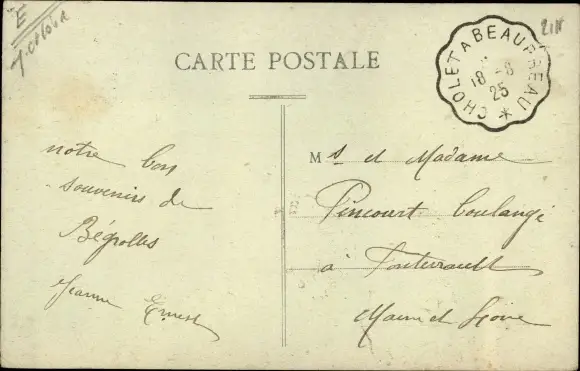 E
CARTE POSTALE
CHOLET A BEAUPREAU *
18 -8
25
notre bon
souvenirs de
Bégrolles
Jeanne Ernest
Mrs et Madame
Pincourt boulangé
à Fontevrault
Maine et Loire